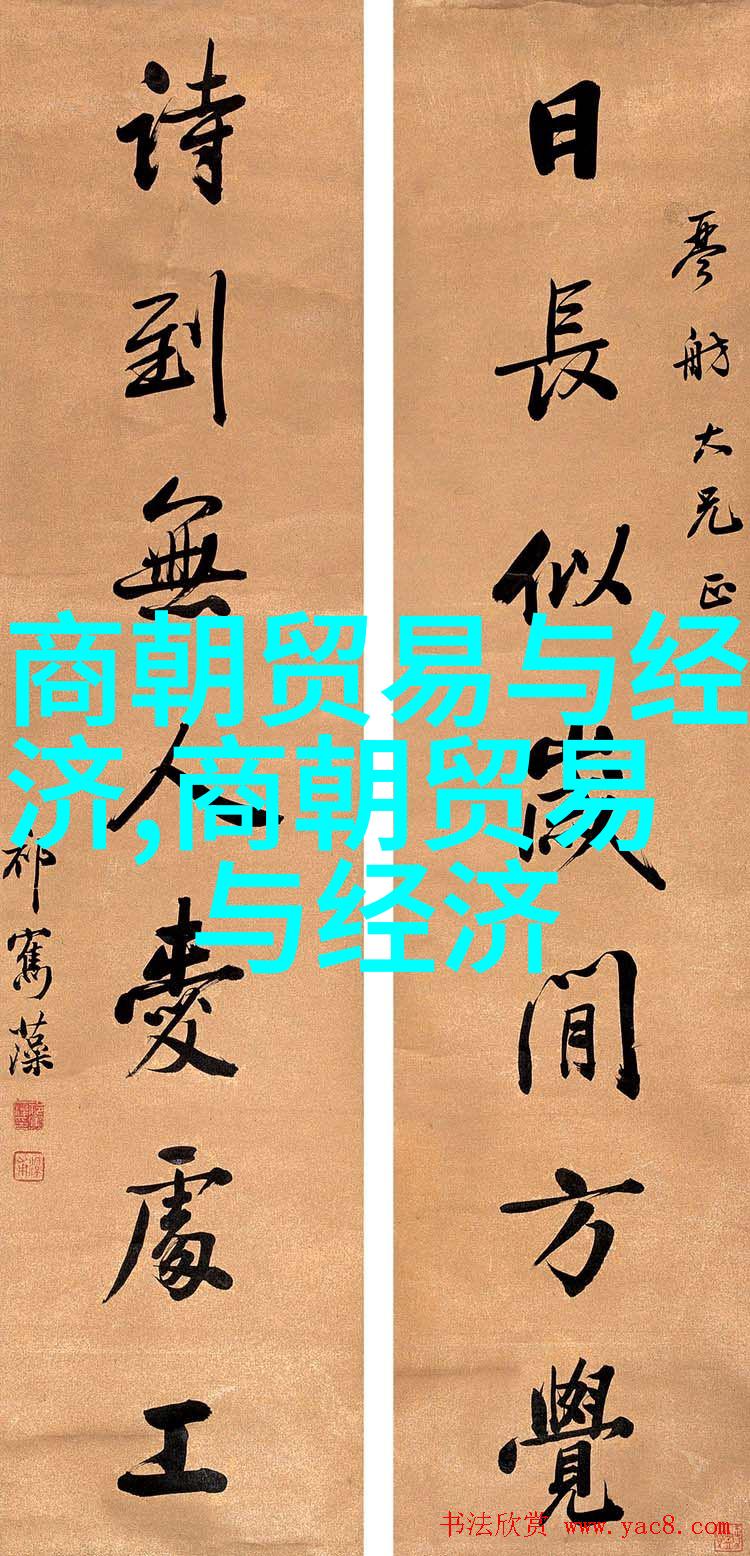 琴舫大兄正
日長似歲閒方覺
詩到無人愛處工
祁寯藻
商朝贸易与经
济,商朝贸易
与经济
书法欣赏 www.yac8.com